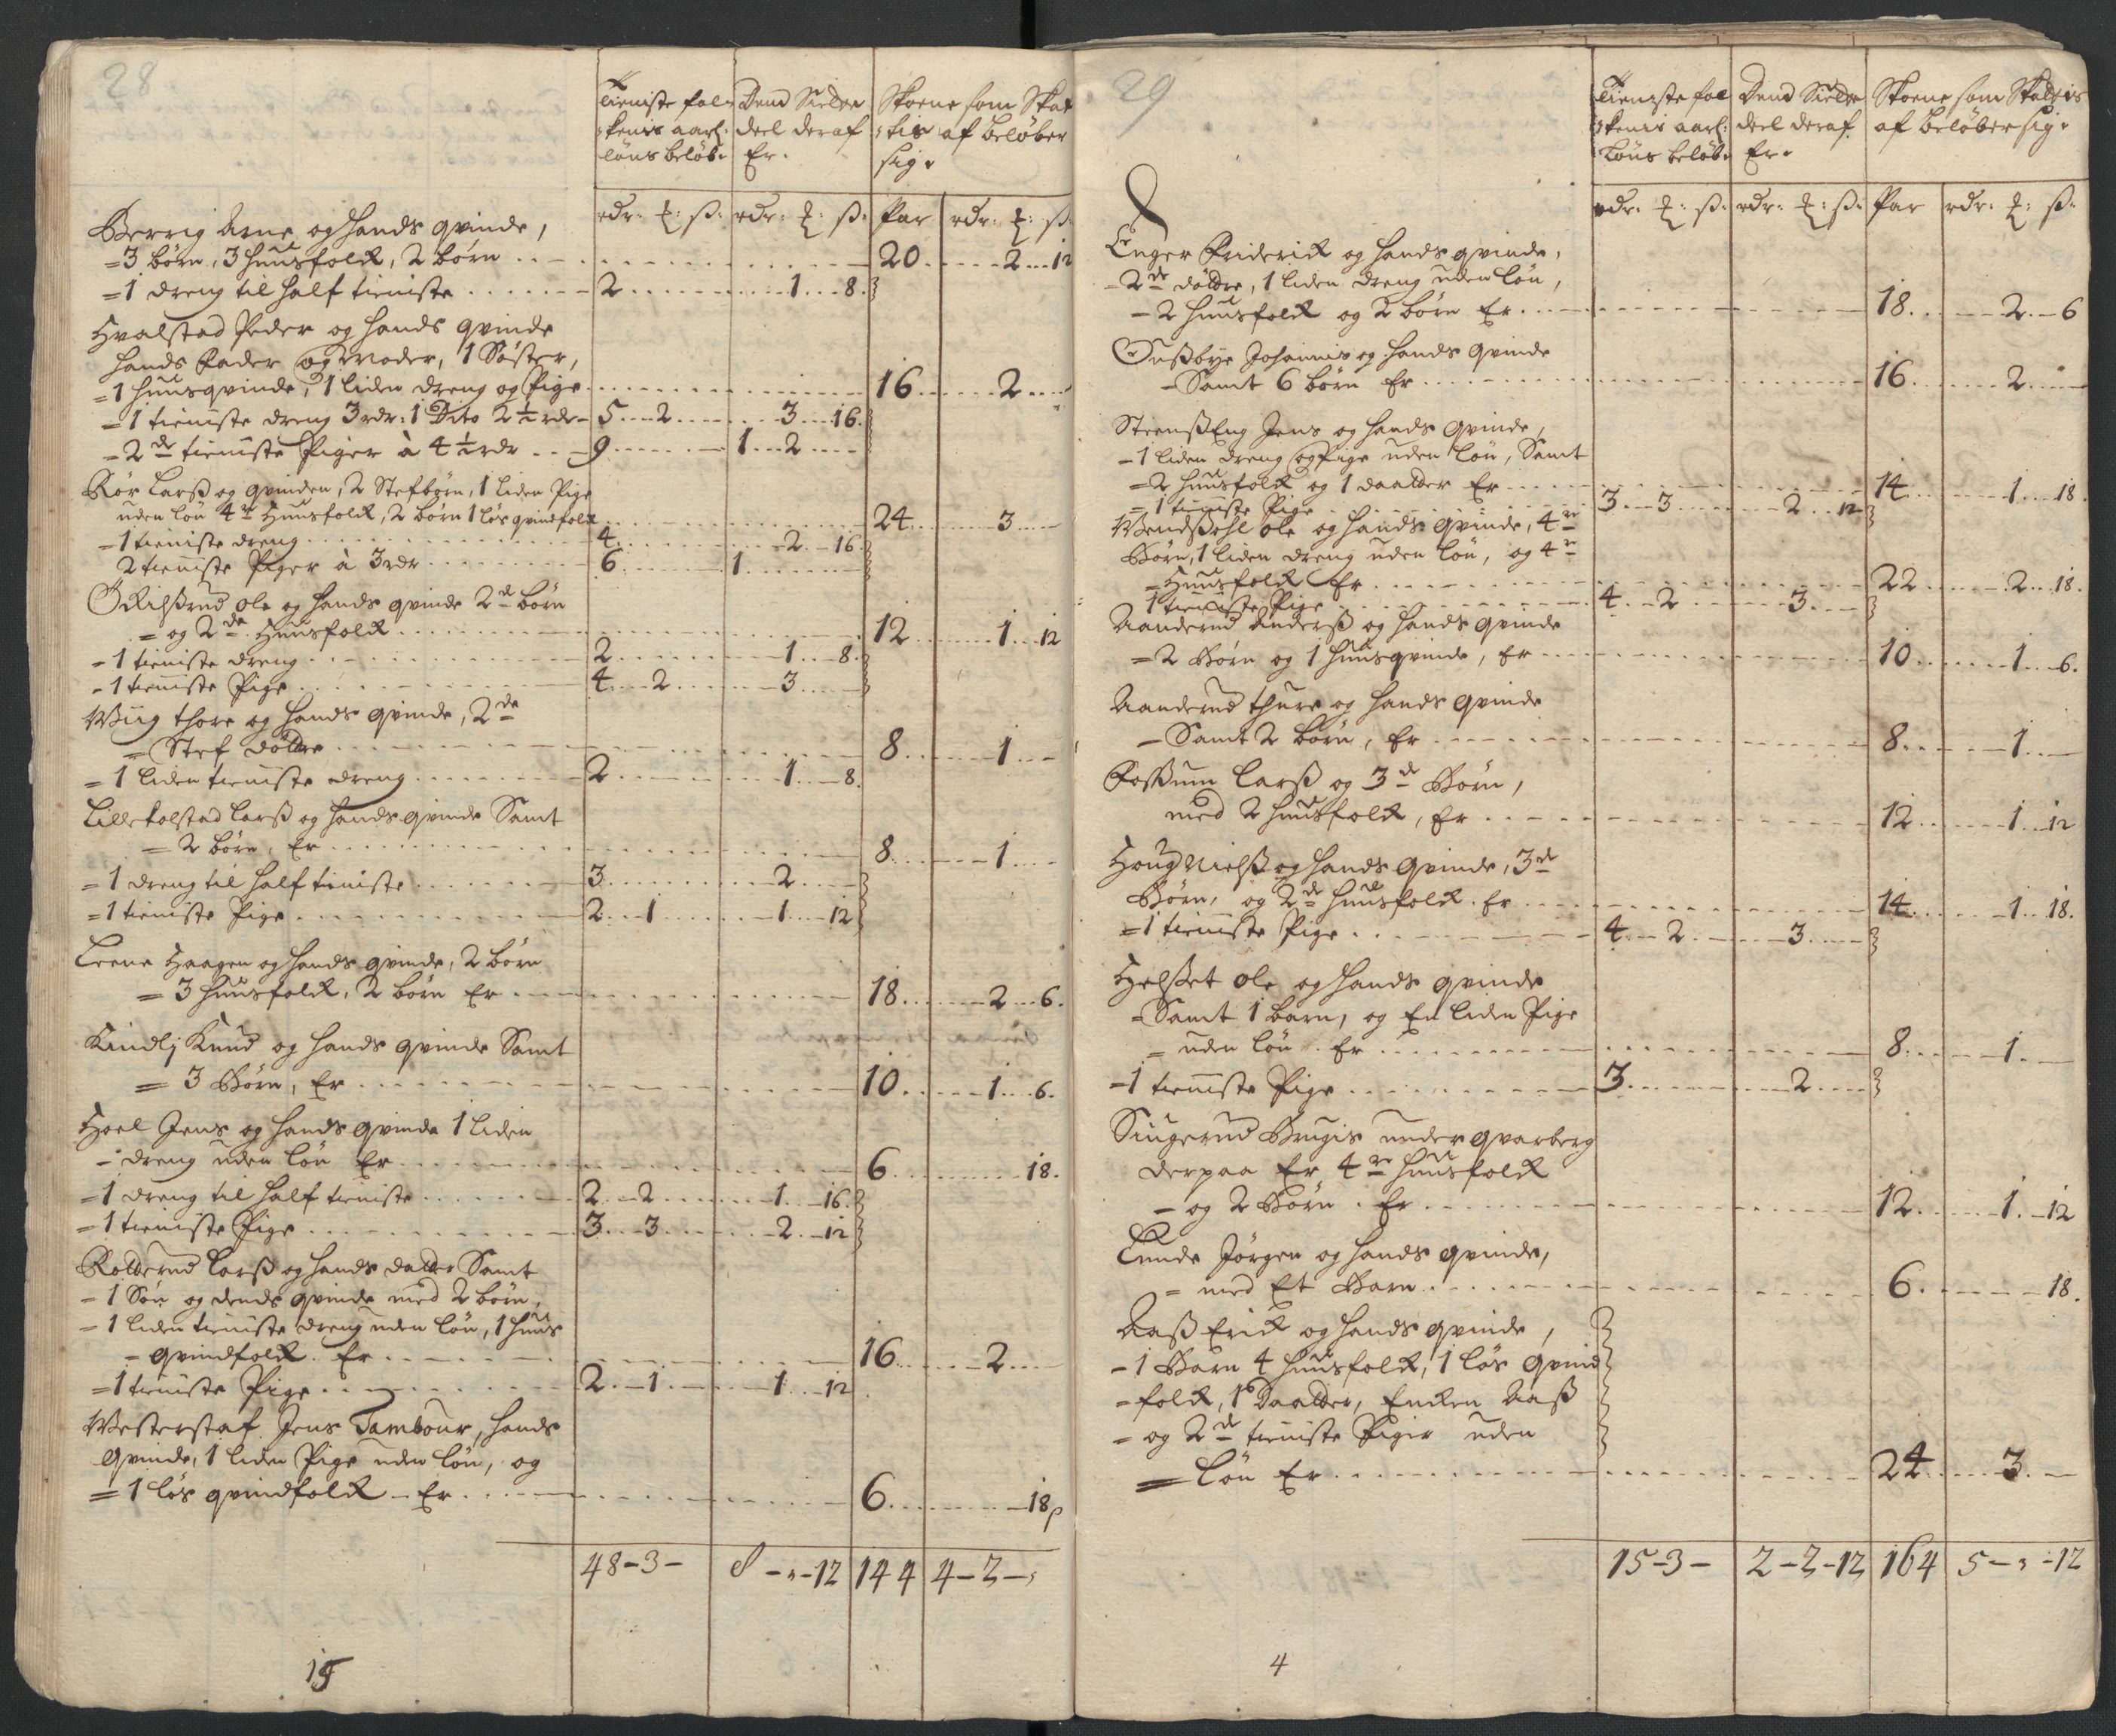 28
Tieniste fol=
=kenis aarl:
löns beløb:
Dend Siette
deel deraf
Er.
Skoene som Skat
=tis af beløber
sig.
rdr: ʒ: ß:
rdr: ʒ: ß:
Par
rdr: ʒ: ß:
Berrig Arne og hands qvinde,
=3 börn, 3 huusfolck, 2 börn 20 2 12
=1 dreng til half tieniste 2 1 8
Hvalstad Peder og hands qvinde
hands Fader og Moder, 1 Söster,
=1 huusqvinde, 1 liden dreng og Pige 16 2
=1 tieniste dreng 3 rdr: 1 Dito 2½ rdr 5 2 3 16
=2de tieniste Piger à 4½ rdr 9 1 2
Rör Larß og qvinden, 2 Stefbörn, 1 liden Pige
uden lön 4re Huusfolck, 2 börn 1 lös qvindfolck 24 3
=1 tieniste dreng 4 2 16
2 tieniste Piger à 3 rdr 6 1
Ole og hands qvinde 2de börn
= og 2de Huusfolck 12 1 12
=1 tieniste dreng 2 1 8
=1 tieniste Pige 4 2 3
Wiig Thore og hands qvinde, 2de
= Stef döttre 8 1
=1 liden tieniste dreng 2 1 8
Lillekolstad Larß og hands qvinde Samt
= 2 börn, Er 8 1
=1 dreng til half tieniste 3 2
=1 tieniste Pige 2 1 1 12
Haagen og hands qvinde, 2 börn
= 3 huusfolck, 2 börn Er 18 2 6
Kindlj Knud og hands qvinde Samt
= 3 Börn, Er 10 1 6
Hoel Jens og hands qvinde 1 liden
= dreng uden lön Er 6 18
=1 dreng til half tieniste 2 2 1 16
=1 tieniste Pige 3 3 2 12
Larß og hands datter Samt
=1 Sön og dends qvinde med 2 börn,
=1 liden tieniste dreng uden lön, 1 huus
= qvindfolck. Er 16 2
=1 tieniste Pige 2 1 1 12
Westerstaf Jens Tambour, hands
qvinde, 1 liden Pige uden lön, og
=1 lös qvindfolck Er 6 18
48-3- 8-,-12 144 4-2-,
15
29
Tieniste fol
=kenis aarl:
Löns beløb:
Dend Siette
deel deraf
Er.
Skoene som Skattis
af beløber sig.
rdr: ʒ: ß:
rdr: ʒ: ß:
Par
rdr: ʒ: ß:
Enger Friderick og hands qvinde,
=2de döttre, 1 liden dreng uden lön,
=2 huusfolck og 2 börn Er 18 2 6
Johannis og hands qvinde
= Samt 6 börn Er 16 2
SteenßEng Jens og hands qvinde,
=1 liden dreng og Pige uden lön, Samt
=2 huusfolck og 1 daatter Er 14 1 18
=1 tieniste Pige 3 3 2 12
Ole og hands qvinde, 4re
Börn, 1 liden dreng uden lön, og 4re
=Huusfolck Er 22 2 18
1 tieniste Pige 4 2 3
Aanderud Anderß og hands qvinde
=2 Börn og 1 huusqvinde, Er 10 1 6
Aanderud Thure og hands qvinde
= Samt 2 börn, Er 8 1
Foßum Larß og 3de Börn,
med 2 huusfolck, Er 12 1 12
Houg Nielß og hands qvinde, 3de
Börn, og 2de huusfolck. Er 14 1 18
=1 tieniste Pige 4 2 3
Helßet Ole og hands qvinde
Samt 1 barn, og En liden Pige
= uden lön. Er 8 1
=1 tieniste Pige 3 2
Singerud Brugis under qvarberg
derpaa Er 4re huusfolck
= og 2 Börn. Er 12 1 12
Lunde Jörgen og hands qvinde,
= med Et Barn 6 18
Aaß Erick og hands qvinde,
=1 Barn 4 huusfolck, 1 lös qvind
=folck, 1 Daatter, Encken Aaß
= og 2de tieniste Piger uden
= lön Er 24 3
15-3- 2-2-12 164 5-,-12
4